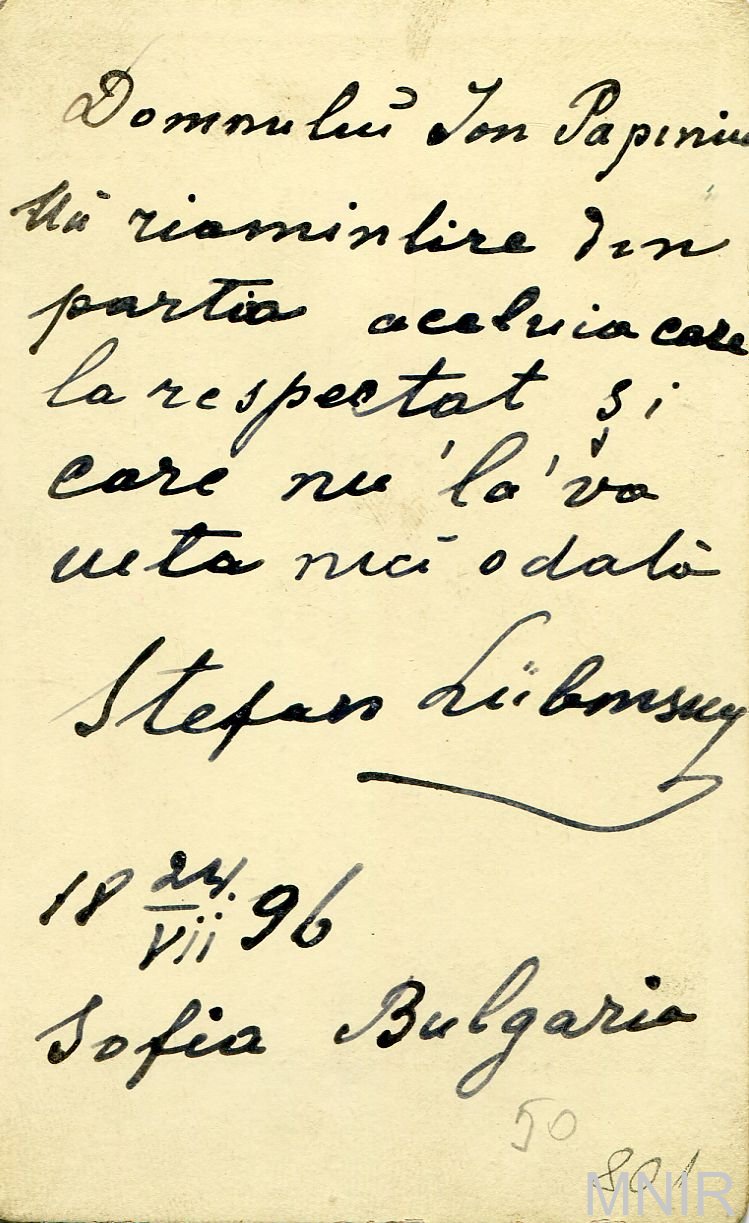 Domnului Ion Papiniu
Uă riamintire din
partia aceluia care
la respectat și
care nu 'la' va
ueta nici odată
Stefan
18 24/VII 96
Sofia Bulgaria
50
801
MNIR